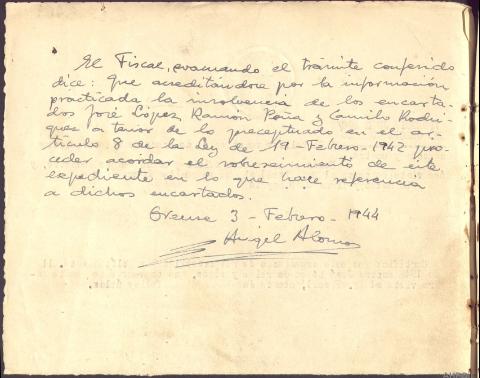 El Fiscal, evacuando el trámite conferido
dice: Que acreditándose por la información
practicada la insolvencia de los encarta-
dos José López, Ramón Poña y Camilo Rodrí-
guez a tenor de lo preceptuado en el ar-
tículo 8 de la Ley de 19-Febrero-1942 pro-
cede acordar el sobreseimiento de este
expediente en lo que hace referencia
a dichos encartados.
Orense 3 - Febrero - 1944
Angel Alonso